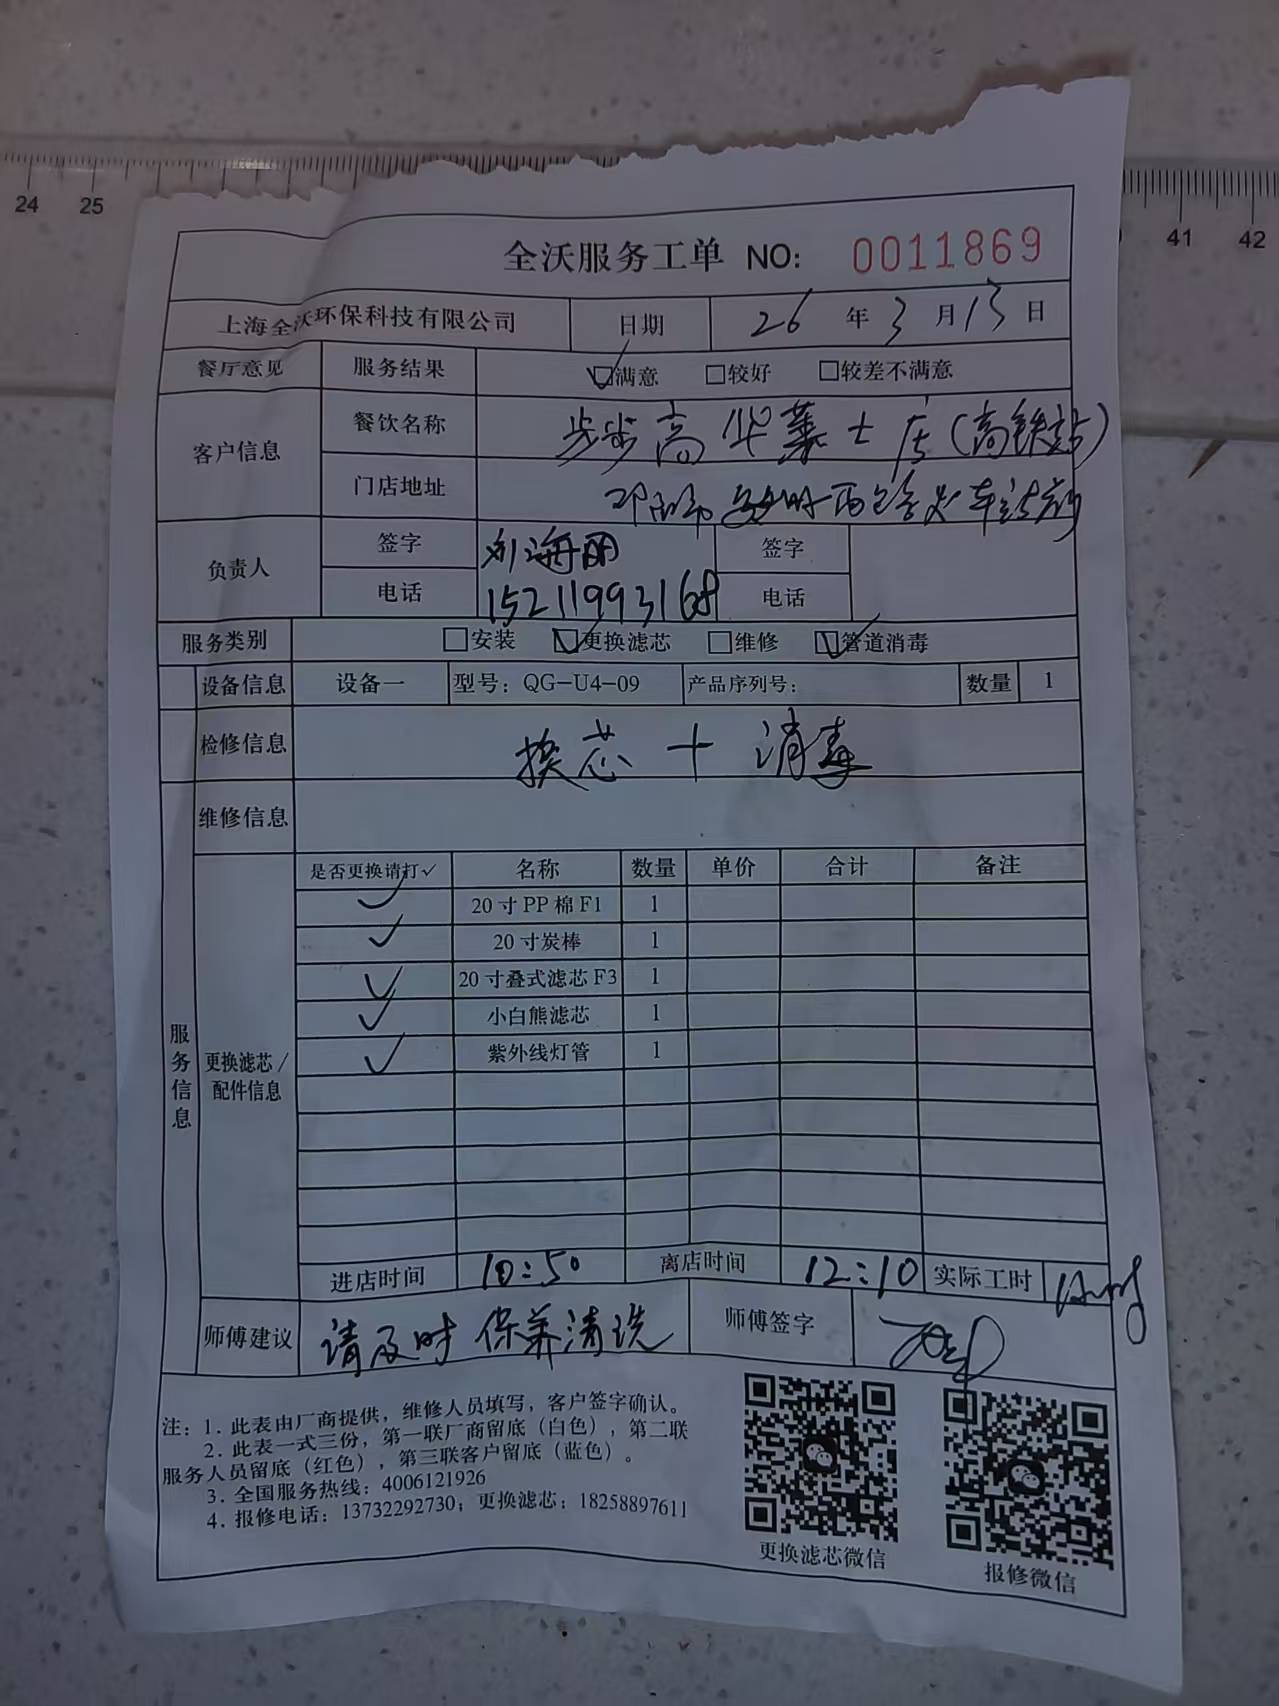 24 25 41 42
全沃服务工单 NO: 0011869
上海全沃环保科技有限公司 日期 26 年 3 月 13 日
餐厅意见 服务结果 ☑满意 □较好 □较差不满意
客户信息 餐饮名称 步步高华莱士店(高铁站)
门店地址 火车站
负责人 签字 刘海丽 签字
电话 15211993168 电话
服务类别 □安装 ☑更换滤芯 □维修 ☑管道消毒
设备信息 设备一 型号: QG-U4-09 产品序列号: 数量 1
检修信息 换芯 + 消毒
维修信息
服务信息
更换滤芯/配件信息
是否更换请打✓ 名称 数量 单价 合计 备注
✓ 20寸PP棉F1 1
✓ 20寸炭棒 1
✓ 20寸叠式滤芯F3 1
✓ 小白熊滤芯 1
✓ 紫外线灯管 1
进店时间 10:50 离店时间 12:10 实际工时
师傅建议 请及时保养清洗 师傅签字
注: 1. 此表由厂商提供, 维修人员填写, 客户签字确认。
2. 此表一式三份, 第一联厂商留底 (白色), 第二联
服务人员留底 (红色), 第三联客户留底 (蓝色)。
3. 全国服务热线: 4006121926
4. 报修电话: 13732292730; 更换滤芯: 18258897611
更换滤芯微信
报修微信